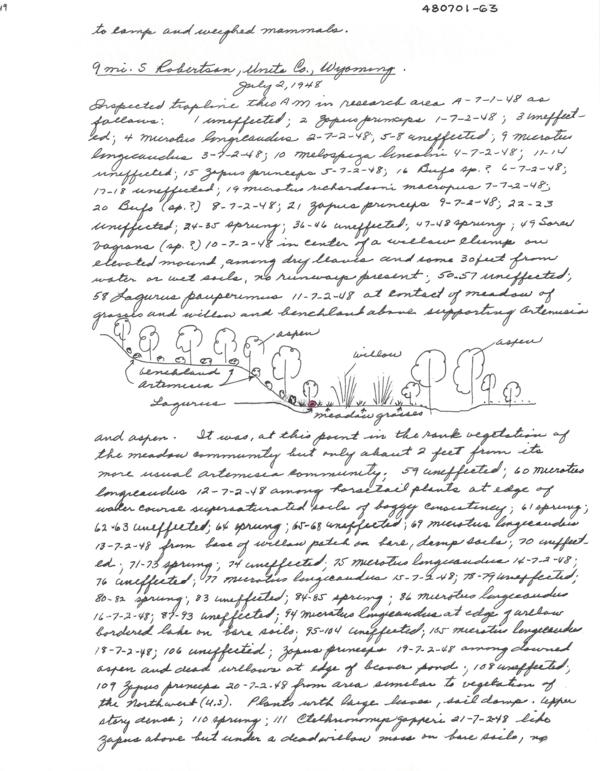 19
480701-63
to camp and weighed mammals.
9 mi. S Robertson, Uinta Co., Wyoming.
July 2, 1948
Inspected trapline this A M in research area A-7-1-48 as
follows: 1 uneffected; 2 Zapus princeps 1-7-2-48; 3 uneffect-
ed; 4 Microtus longicaudus 2-7-2-48; 5-8 uneffected; 9 Microtus
longicaudus 3-7-2-48; 10 Melospiza lincolni 4-7-2-48; 11-14
uneffected; 15 Zapus princeps 5-7-2-48; 16 Bufo sp.? 6-7-2-48;
17-18 uneffected; 19 microtus richardsoni macropus 7-7-2-48;
20 Bufo (sp.?) 8-7-2-48; 21 Zapus princeps 9-7-2-48; 22-23
uneffected; 24-35 sprung; 36-46 uneffected; 47-48 sprung; 49 Sorex
vagrans (sp.?) 10-7-2-48 in center of a willow clump on
elevated mound, among dry leaves and some 30 feet from
water or wet soils, no runways present; 50-57 uneffected;
58 Lagurus pauperimus 11-7-2-48 at contact of meadow of
grasses and willow and benchland above supporting Artemisia
aspen
willow
aspen
benchland
Artemisia
Lagurus
meadow grasses
and aspen. It was, at this point in the rank vegetation of
the meadow community but only about 2 feet from its
more usual artemisia community; 59 uneffected; 60 Microtus
longicaudus 12-7-2-48 among horsetail plants at edge of
water course supersaturated soils of boggy consistency; 61 sprung;
62-63 uneffected; 64 sprung; 65-68 uneffected; 69 Microtus longicaudus
13-7-2-48 from base of willow patch on bare, damp soils; 70 uneffect-
ed; 71-73 sprung; 74 uneffected; 75 Microtus longicaudus 14-7-2-48;
76 uneffected; 77 Microtus longicaudus 15-7-2-48; 78-79 uneffected;
80-82 sprung; 83 uneffected; 84-85 sprung; 86 Microtus longicaudus
16-7-2-48; 87-93 uneffected; 94 Microtus longicaudus at edge of willow
bordered lake on bare soils; 95-104 uneffected; 105 Microtus longicaudus
18-7-2-48; 106 uneffected; Zapus princeps 19-7-2-48 among downed
aspen and dead willows at edge of beaver pond; 108 uneffected;
109 Zapus princeps 20-7-2-48 from area similar to vegetation of
the Northwest (U.S). Plants with large leaves, soil damp. upper
story dense; 110 sprung; 111 Clethrionomys gapperi 21-7-2-48 like
Zapus above but under a dead willow mass on bare soils, no